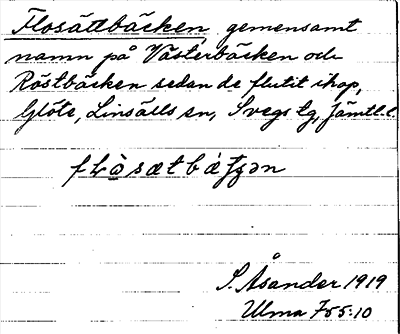 Flosättbäcken, gemensamt
namn på Västerbäcken och
Röstbäcken sedan de flutit ihop,
Glöte, Linsälls sn, Svegs tg, Jämtl.l.
S. Åsander 1919
Ulma 755:10